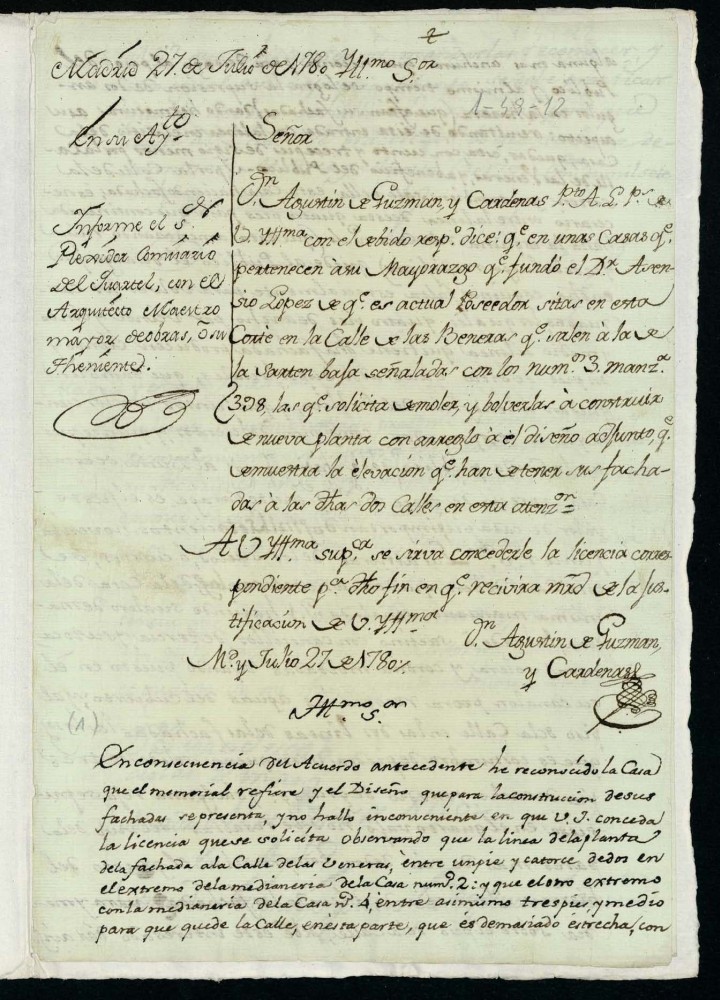 Madrid 27. de Julio de 1780
Yllmo. Sor
1-48-12
En su Ayto.
Informe el sor.
Regidor Comisario
del Quartel, con el
Arquitecto Maestro
mayor de obras, ô su
Theniente.
Señor
Dn. Agustin de Guzman, y Cardenas Pto. A. L. Ps. de
V. Yllma. con el debido respo. dice: qe. en unas Casas qe.
pertenecen à su Mayorazgo qe. fundó el Dr. Asen-
sio Lopez de qe. es actual Poseedor sitas en esta
Corte en la Calle de las Beneras qe. salen à la de
la Sarten baja señaladas con los numos. 3. manza.
398, las qe. solicita demoler, y bolverlas à construir
de nueva planta con arreglo à el diseño adjunto, qe.
demuestra la elevación qe. han de tener sus facha-
das à las dhas dos Calles en esta atenzon.=
A V. Yllma. supca. se sirva concederle la licencia corres-
pondiente pa. dho fin en qe. recivira mrd de la jus-
tificacion de V. Yllma.
Md. y Julio 27 de 1780
Dn. Agustin de Guzman,
y Cardenas
Yllmo. sor.
(1)
En consecuencia del Acuerdo antecedente he reconocido la Casa
que el memorial refiere y el Diseño que para la construcion de sus
fachadas se presenta, y no hallo inconveniente en que V. I. conceda
la licencia que se solicita observando que la linea de la planta
de la fachada a la Calle de las Veneras, entre un pie y catorce dedos en
el extremo de la medianeria de la Casa numo. 2: y que el otro extremo
con la medianeria de la Casa no. 4, entre asimismo tres pies y medio
para que quede la Calle, en esta parte, que es demasiado estrecha, con